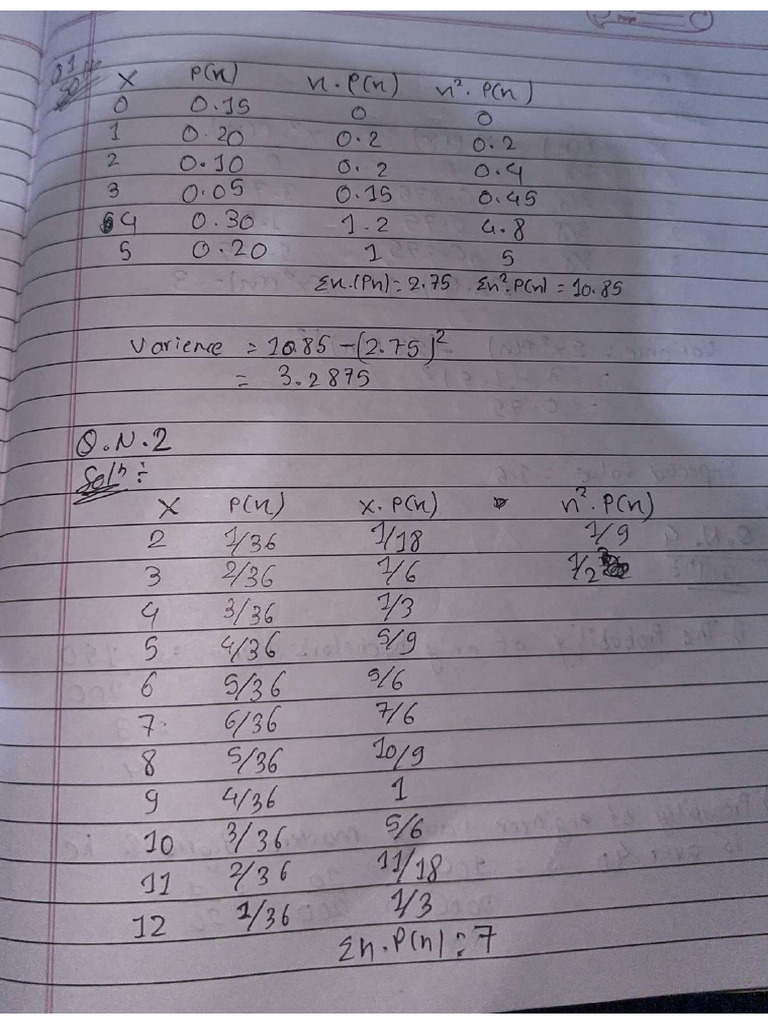 Q 1
Soln
X P(n) n.P(n) n².P(n)
0 0.15 0 0
1 0.20 0.2 0.2
2 0.10 0.2 0.4
3 0.05 0.15 0.45
4 0.30 1.2 4.8
5 0.20 1 5
Σn.(Pn) = 2.75 Σn².P(n) = 10.85
Varience = 10.85 - (2.75)²
= 3.2875
Q.N.2
Solⁿ :
X P(n) x.P(n) n².P(n)
2 1/36 1/18 1/9
3 2/36 1/6 1/2
4 3/36 1/3
5 4/36 5/9
6 5/36 5/6
7 6/36 7/6
8 5/36 10/9
9 4/36 1
10 3/36 5/6
11 2/36 11/18
12 1/36 1/3
Σn.P(n) = 7